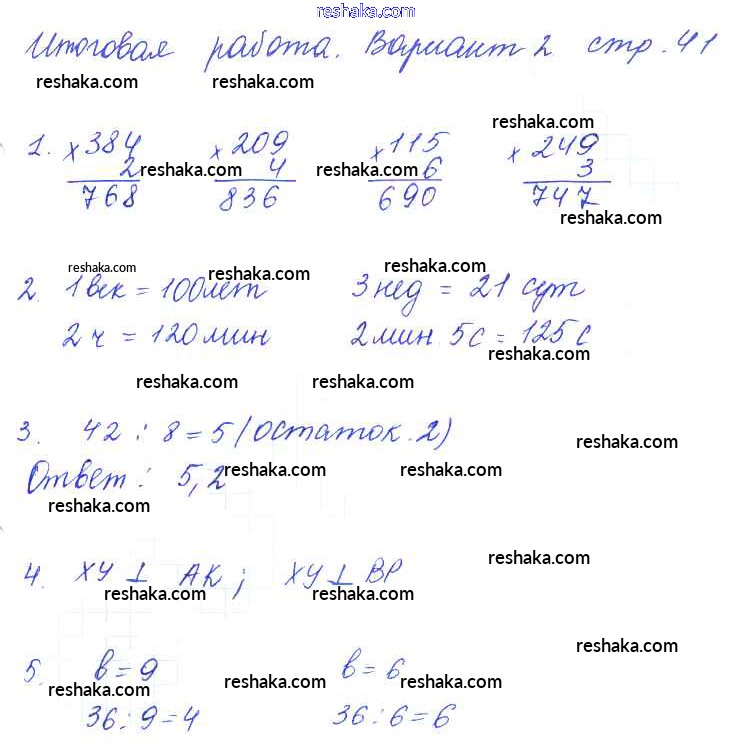 reshaka.com
Итоговая работа. Вариант 2 стр. 41
reshaka.com reshaka.com
reshaka.com
1. × 384 × 209 × 115 × 249
2 reshaka.com 4 reshaka.com 6 3
768 836 690 747
reshaka.com
reshaka.com reshaka.com
2. 1 век = 100 лет 3 нед = 21 сут
2 ч = 120 мин 2 мин. 5 с = 125 с
reshaka.com
reshaka.com reshaka.com
3. 42 : 8 = 5 (остаток. 2)
reshaka.com
Ответ: 5, 2 reshaka.com reshaka.com
reshaka.com
reshaka.com
4. XY ⊥ AK; XY ⊥ BP
reshaka.com reshaka.com
reshaka.com
5. b = 9 b = 6
reshaka.com reshaka.com reshaka.com
36 : 9 = 4 36 : 6 = 6